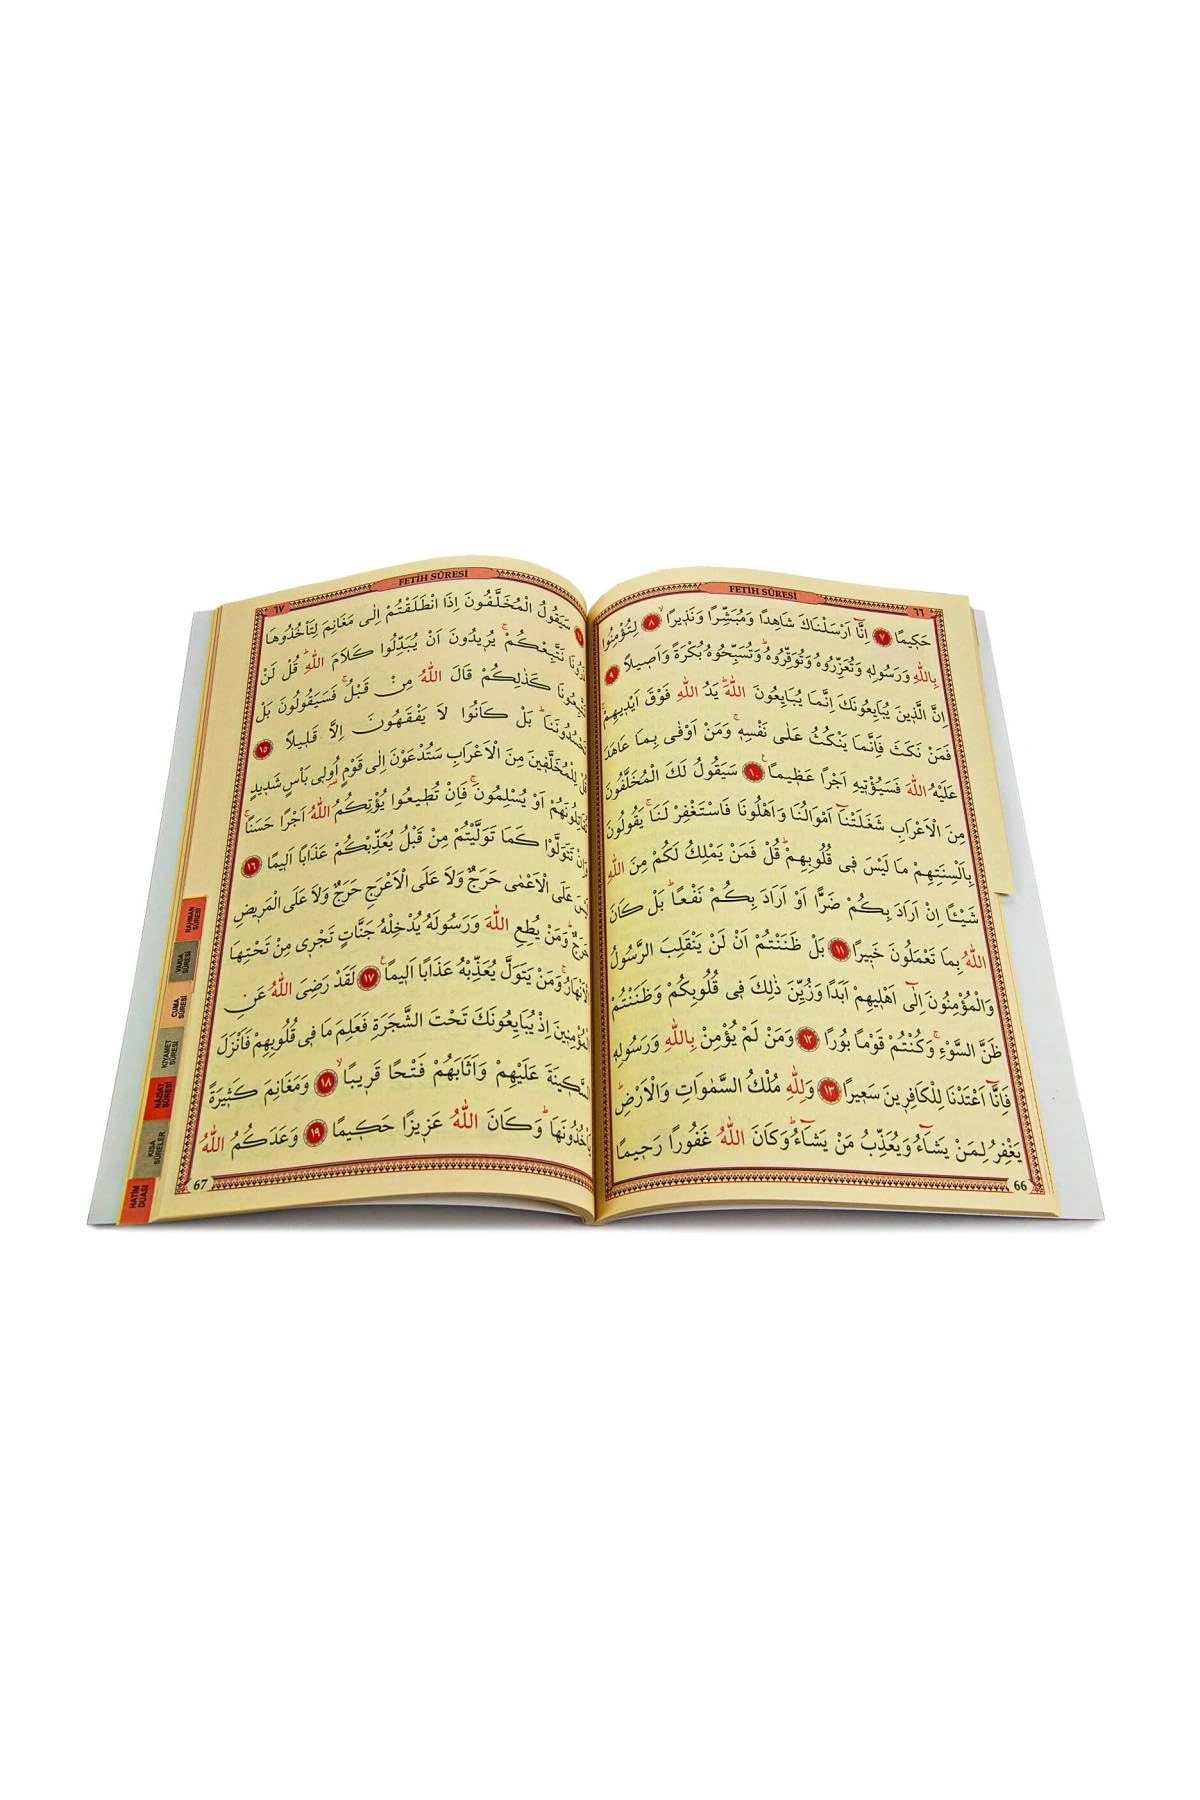 FETİH SÛRESİ
٦٦
حَكِيمًا ٧ اِنَّٓا اَرْسَلْنَاكَ شَاهِدًا وَمُبَشِّرًا وَنَذِيرًا ٨ لِتُؤْمِنُوا
بِاللّٰهِ وَرَسُولِهِ وَتُعَزِّرُوهُ وَتُوَقِّرُوهُ وَتُسَبِّحُوهُ بُكْرَةً وَاَصِيلًا ٩
اِنَّ الَّذِينَ يُبَايِعُونَكَ اِنَّمَا يُبَايِعُونَ اللّٰهَ يَدُ اللّٰهِ فَوْقَ اَيْدِيهِمْ
فَمَنْ نَكَثَ فَاِنَّمَا يَنْكُثُ عَلٰى نَفْسِهِ وَمَنْ اَوْفٰى بِمَا عَاهَدَ
عَلَيْهُ اللّٰهَ فَسَيُؤْتِيهِ اَجْرًا عَظِيمًا ١٠ سَيَقُولُ لَكَ الْمُخَلَّفُونَ
مِنَ الْاَعْرَابِ شَغَلَتْنَٓا اَمْوَالُنَا وَاَهْلُونَا فَاسْتَغْفِرْ لَنَا يَقُولُونَ
بِاَلْسِنَتِهِمْ مَا لَيْسَ فِي قُلُوبِهِمْ قُلْ فَمَنْ يَمْلِكُ لَكُمْ مِنَ اللّٰهِ
شَيْـًٔا اِنْ اَرَادَ بِكُمْ ضَرًّا اَوْ اَرَادَ بِكُمْ نَفْعًا بَلْ كَانَ
اللّٰهُ بِمَا تَعْمَلُونَ خَبِيرًا ١١ بَلْ ظَنَنْتُمْ اَنْ لَنْ يَنْقَلِبَ الرَّسُولُ
وَالْمُؤْمِنُونَ اِلٰٓى اَهْلِيهِمْ اَبَدًا وَزُيِّنَ ذٰلِكَ فِي قُلُوبِكُمْ وَظَنَنْتُمْ
ظَنَّ السَّوْءِ وَكُنْتُمْ قَوْمًا بُورًا ١٢ وَمَنْ لَمْ يُؤْمِنْ بِاللّٰهِ وَرَسُولِهِ
فَاِنَّٓا اَعْتَدْنَا لِلْكَافِرِينَ سَعِيرًا ١٣ وَلِلّٰهِ مُلْكُ السَّمٰوَاتِ وَالْاَرْضِ
يَغْفِرُ لِمَنْ يَشَٓاءُ وَيُعَذِّبُ مَنْ يَشَٓاءُ وَكَانَ اللّٰهُ غَفُورًا رَحِيمًا
66
FETİH SÛRESİ
٦٧
سَيَقُولُ الْمُخَلَّفُونَ اِذَا انْطَلَقْتُمْ اِلٰى مَغَانِمَ لِتَأْخُذُوهَا
نَتَّبِعْكُمْ يُرِيدُونَ اَنْ يُبَدِّلُوا كَلَامَ اللّٰهِ قُلْ لَنْ
كَذٰلِكُمْ قَالَ اللّٰهُ مِنْ قَبْلُ فَسَيَقُولُونَ بَلْ
بَلْ كَانُوا لَا يَفْقَهُونَ اِلَّا قَلِيلًا ١٥
لِلْمُخَلَّفِينَ مِنَ الْاَعْرَابِ سَتُدْعَوْنَ اِلٰى قَوْمٍ اُولِي بَأْسٍ شَدِيدٍ
اَوْ يُسْلِمُونَ فَاِنْ تُطِيعُوا يُؤْتِكُمُ اللّٰهُ اَجْرًا حَسَنًا
تَتَوَلَّوْا كَمَا تَوَلَّيْتُمْ مِنْ قَبْلُ يُعَذِّبْكُمْ عَذَابًا اَلِيمًا ١٦
عَلَى الْاَعْمٰى حَرَجٌ وَلَا عَلَى الْاَعْرَجِ حَرَجٌ وَلَا عَلَى الْمَرِيضِ
وَمَنْ يُطِعِ اللّٰهَ وَرَسُولَهُ يُدْخِلْهُ جَنَّاتٍ تَجْرِي مِنْ تَحْتِهَا
وَمَنْ يَتَوَلَّ يُعَذِّبْهُ عَذَابًا اَلِيمًا ١٧ لَقَدْ رَضِيَ اللّٰهُ عَنِ
اِذْ يُبَايِعُونَكَ تَحْتَ الشَّجَرَةِ فَعَلِمَ مَا فِي قُلُوبِهِمْ فَاَنْزَلَ
عَلَيْهِمْ وَاَثَابَهُمْ فَتْحًا قَرِيبًا ١٨ وَمَغَانِمَ كَثِيرَةً
وَكَانَ اللّٰهُ عَزِيزًا حَكِيمًا ١٩ وَعَدَكُمُ اللّٰهُ
67
RAHMAN SÛRESİ
VAKIA SÛRESİ
CUMA SÛRESİ
KIYAMET SÛRESİ
NAZİAT SÛRESİ
KISA SÛRELER
HATİM DUASI